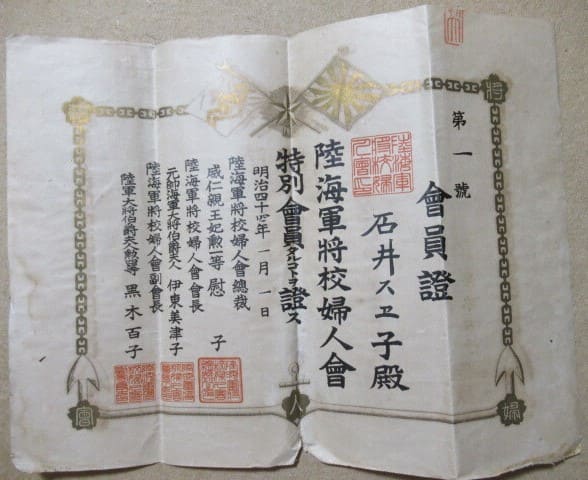 第一號
會員證
石井スヱ子殿
陸海軍將校婦人會
特別會員タルヿヲ證ス
明治四十四年一月一日
陸海軍將校婦人會總裁
威仁親王妃勲一等慰子
陸海軍將校婦人會會長
元帥海軍大將伯爵夫人伊東美津子
陸海軍將校婦人會副會長
陸軍大將伯爵夫人黒木百子
將
校
婦
人
會